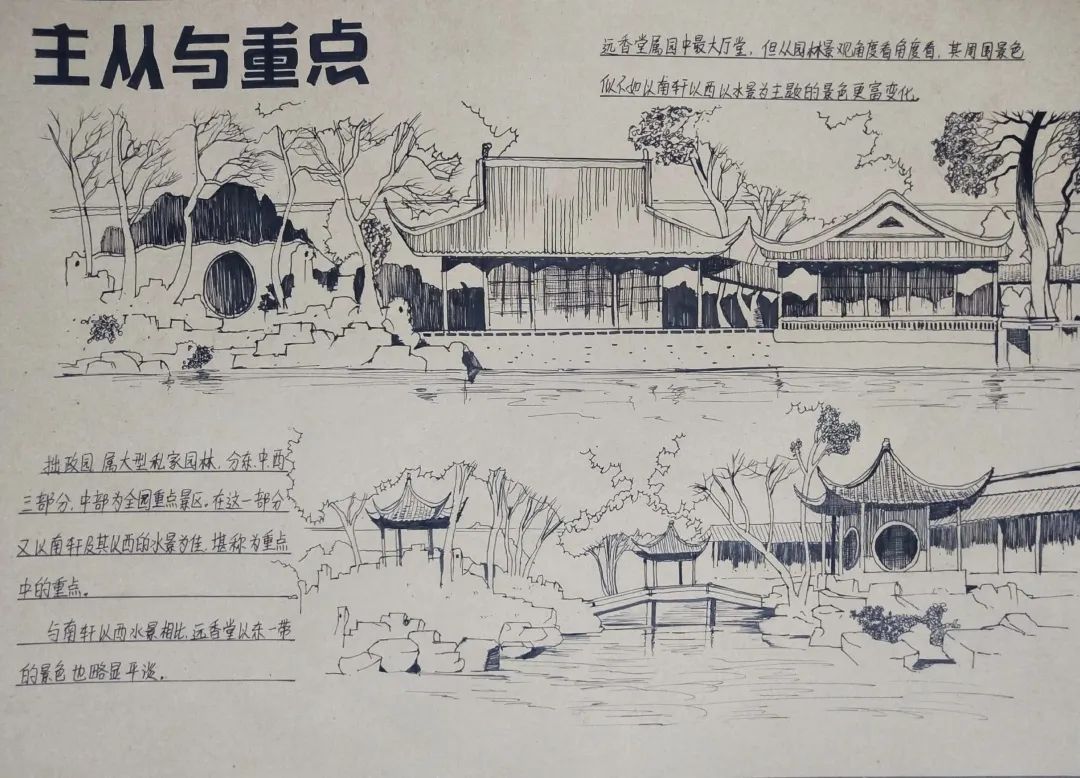 主从与重点
远香堂属园中最大厅堂，但从园林景观角度看角度看，其周围景色
似不如以南轩以西以水景为主题的景色更富变化。
拙政园属大型私家园林，分东、中、西
三部分，中部为全园重点景区。在这一部分
又以南轩及其以西的水景为佳，堪称为重点
中的重点。
与南轩以西水景相比，远香堂以东一带
的景色也略显平淡。